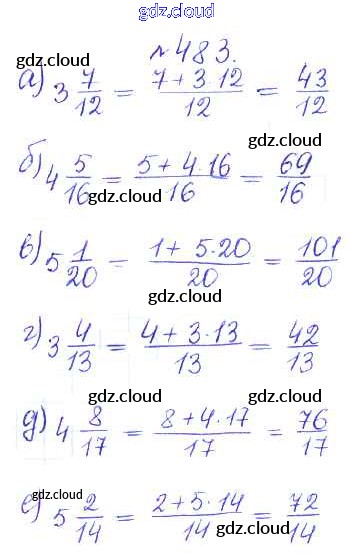 gdz.cloud
№483.
gdz.cloud gdz.cloud
а) 3 7/12 = (7+3·12)/12 = 43/12
gdz.cloud
б) 4 5/16 = (5+4·16)/16 = 69/16
gdz.cloud
в) 5 1/20 = (1+5·20)/20 = 101/20
gdz.cloud
г) 3 4/13 = (4+3·13)/13 = 42/13
gdz.cloud gdz.cloud
д) 4 8/17 = (8+4·17)/17 = 76/17
gdz.cloud
gdz.cloud
е) 5 2/14 = (2+5·14)/14 = 72/14
gdz.cloud gdz.cloud